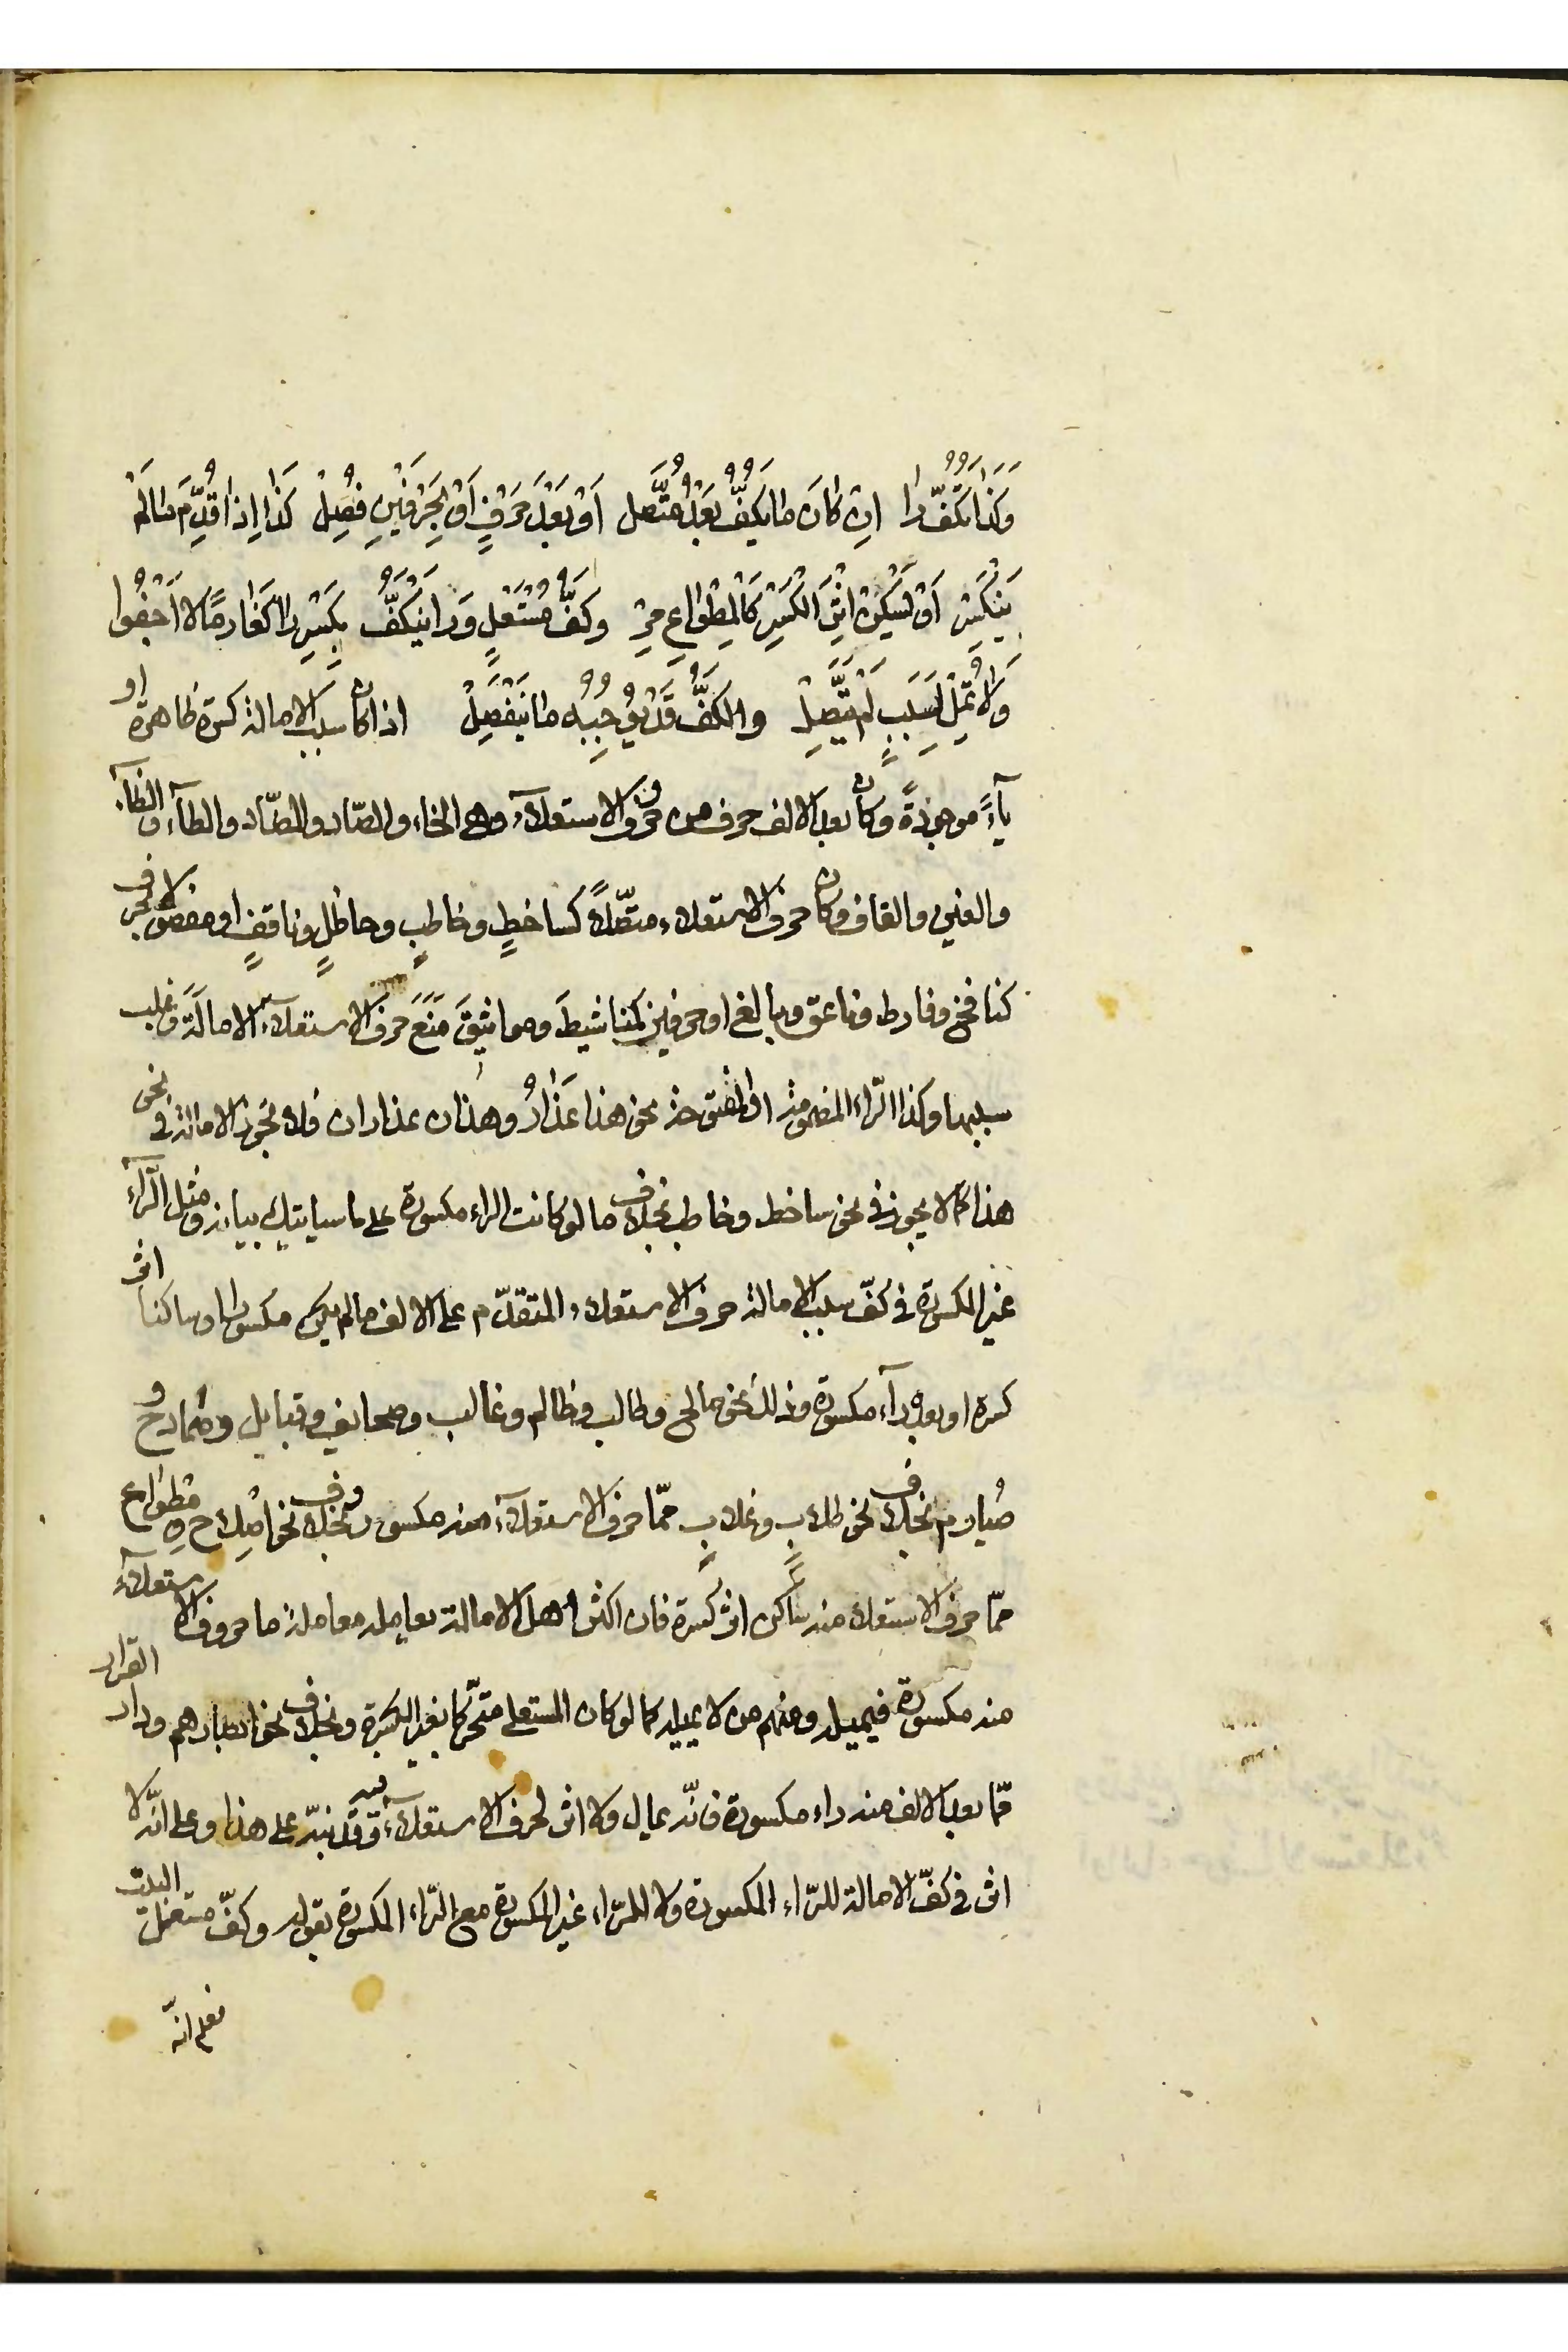 وَكَذَا تَكُفُّ رَا اِنْ كَانَ مَا يَكُفُّ بَعْدُ مُتَّصِل اَوْ بَعْدَ حَرْفٍ اَوْ بِحَرْفَيْنِ فُصِلْ كَذَا اِذَا قُدِّمَ مَا لَمْ
يَنْكَسِرْ اَوْ يَسْكُنْ اثْرَ الْكَسْرِ كَالْمِطْوَاعِ مِرْ وَكَفُّ مُسْتَعْلٍ وَرَا يَنْكَفُّ بِكَسْرِ رَا كَغَارِمًا لَا اَجْفُوا
وَلَا تُمِلْ لِسَبَبٍ لَمْ يَتَّصِلْ وَالْكَفُّ قَدْ يُوجِبُهُ مَا يَنْفَصِلْ اذا كان سبب الامالة كسرة ظاهرة او
ياءً موجودةً وكان بعد الالف حرف من حروف الاستعلاء وهى الخاء والصّاد والضّاد والطاء والظاء
والغين والقاف وكان حرف الاستعلاء متصّلاً كساخطٍ وخاطبٍ وحاظلٍ وناقفٍ او مفصولا بحرف
كنافخ وفارط وناعق وبالغ او حرفين كمناشيطَ ومواثيقَ مَنَعَ حرف الاستعلاء الامالَةَ وغلب
سببها وكذا الرّاء المضمومة او المفتوحة نحو هذا عَذَارُ وهذان عذاران فلا تجوز الامالة فى نحو
هذا كما لا يجوز فى نحو ساخط وخاطب بخلاف ما لو كانت الراء مكسورة على ما سياتيك بيانه ومثل الرّاء
غير المكسورة فى كفّ سبب الامالة حرف الاستعلاء المتقدّم على الالف ما لم يكن مكسورا او ساكنا اثر
كسرة او بعده راء مكسورة وذلك نحو صالح وطالب وظالم وغالب وصحايف وقبايل وضمارح و
صُيارم بخلاف نحو طلابٍ وغلابٍ ممّا حرف الاستعلاء منه مكسور وبخلاف نحو اصلاح ومطواع
ممّا حرف الاستعلاء منه ساكن اثر كسرة فان اكثر اهل الامالة يعامله معاملة ما حروف الاستعلاء
منه مكسورة فيميله ومنهم من لا يميله كما لو كان المستعلى متحّركا بغير الكسرة وبخلاف نحو ابصارهم ودار القرار
ممّا بعد الالف منه راء مكسورة فانّه يمال ولا اثر لحرف الاستعلاء فيه وقد نبّه على هذا وعلى انّه لا
اثر فى كفّ الامالة للرّاء المكسورة ولا للرّاء غير المكسورة مع الرّاء المكسورة بقوله وكفّ مستعل البيت
فعلم انّه